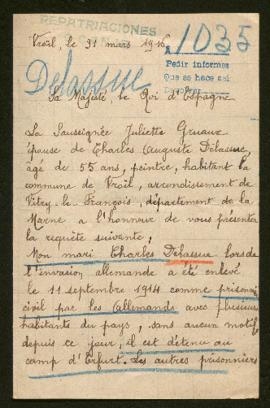 REPATRIACIONES
Vroil, le 31 mars 1916
1035
Pedir informes
Que se hace así
Delassue
Sa Majesté le Roi d'Espagne
La Soussignée Juliette Gruaux
épouse de Charles Auguste Délassue,
âgé de 55 ans, peintre, habitant la
commune de Vroil, arrondissement de
Vitry-le-François, département de la
Marne a l'honneur de vous présenter
la requête suivante:
Mon mari Charles Délassue lors de
l'invasion allemande a été enlevé
le 11 septembre 1914 comme prisonnier
civil par les allemands avec plusieurs
habitants du pays, sans aucun motif
depuis ce jour, il est détenu au
camp d'Erfurt. Les autres prisonniers